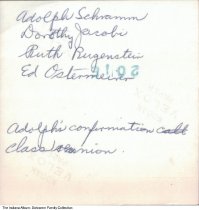 Adolph Schramm
Dorothy Jacobi
Ruth Rugenstein
Ed Ostermeier
Adolph's confirmation
class reunion.
The Indiana Album, Ostermeier Family Collection